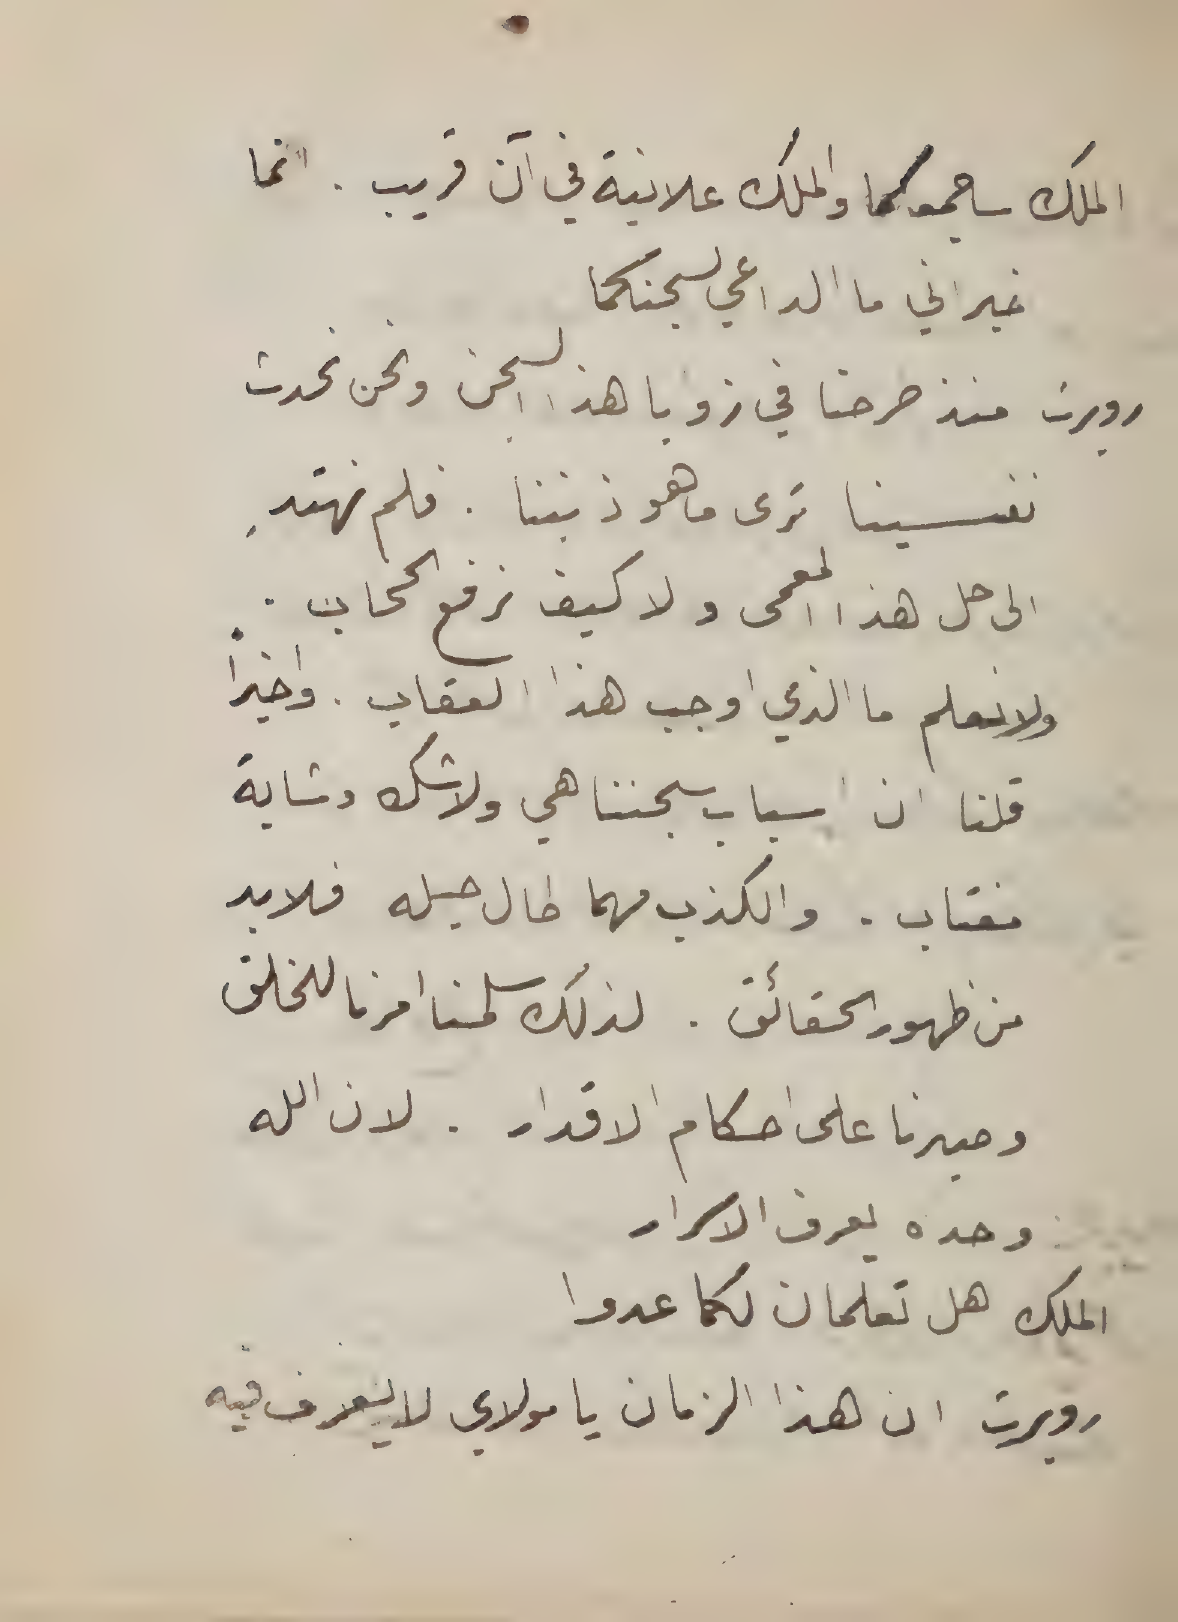 الملك ساجمعكما والملك علانية في آن قريب . انما
خبراني ما الداعي لسجنكما
روبرت منذ طرحنا في زوايا هذا السجن ونحن نحدث
نفسينا ترى ما هو ذنبنا . فلم نهتدِ
الى حل هذا المعمى ولا كيف نرفع الحجاب .
ولا نعلم ما الذي اوجب هذا العقاب . واخيراً
قلنا ان اسباب سجننا هي ولا شك وشاية
مغتاب . والكذب مهما طال حبله فلا بد
من ظهور الحقائق . لذلك سلمنا امرنا للخالق
وصبرنا على احكام الاقدار . لان الله
وحده يعرف الاسرار
الملك هل تعلمان لكما عدوا
روبرت ان هذا الزمان يا مولاي لا يعرف فيه